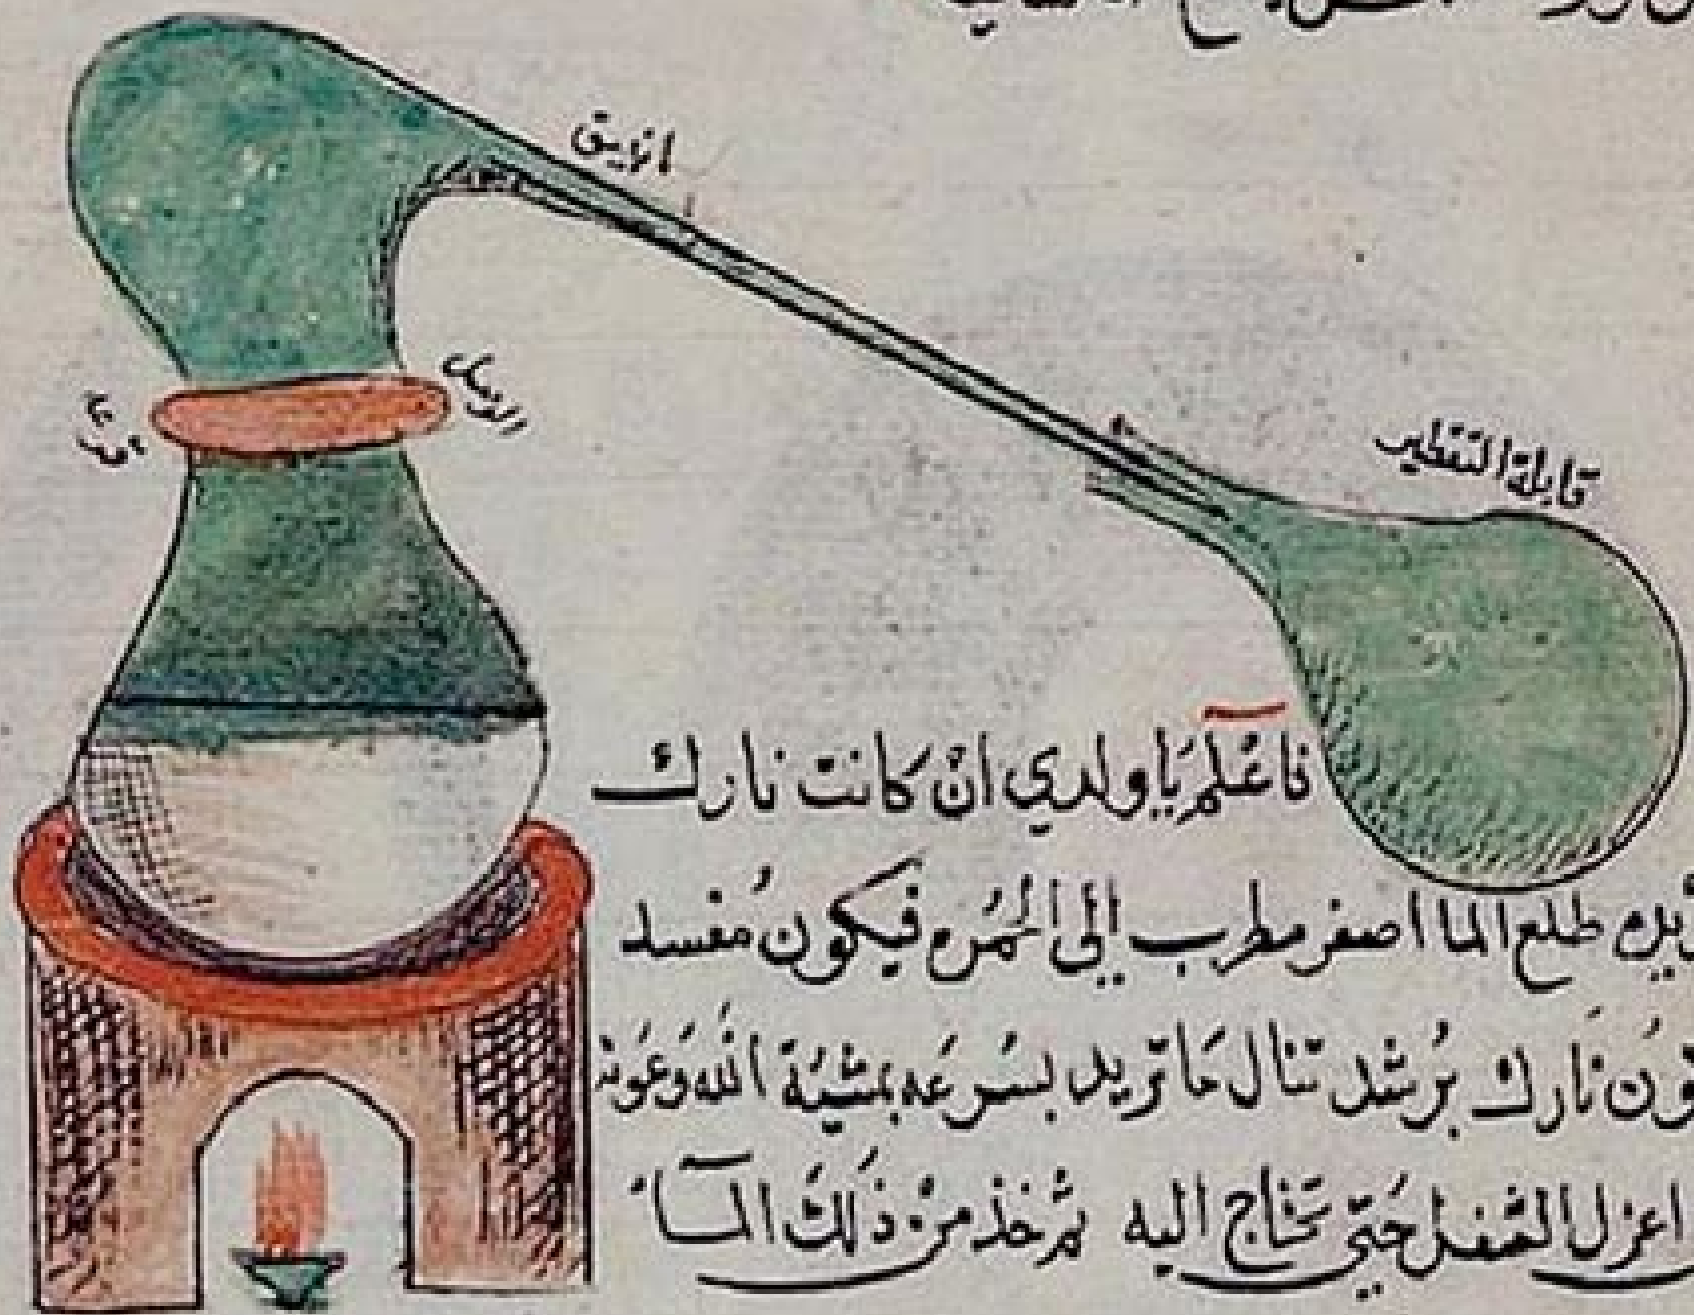 انبيق
الوصل
قرعة
قابلة التقطير
فاعْلم يَا ولدي انْ كانت نارك
طلع الما اصفر مطرب الى الحُمره فيكون مُفسد
نَارك بُرشد تنال مَا تريد بسُرعَه بمشيّة الله وَعَونه
اعزل الثفل حَتي تحتاج اليه ثم خذ من ذَلكَ المآء